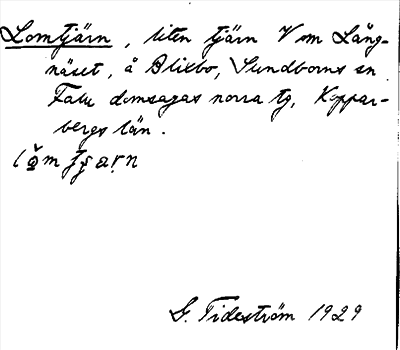 Lomtjärn, liten tjärn V om Lång-
näset, å Blixbo, Sundborns sn
Falu domsagas norra tg, Koppar-
bergs län.
G. Tideström 1929